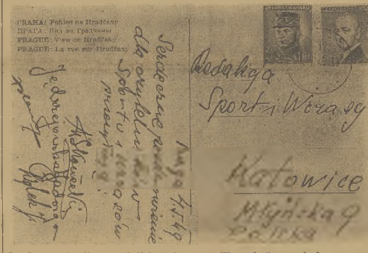 PRAHA: Pohled na Hradčany
ПРАГА: Вид на Градчаны
PRAGUE: View of Hradčany
PRAGUE: La vue sur Hradčany
Praga 4.5.49
Serdeczne pozdrowienia
dla czytelników
Sportu i Wczasów
przesyłają
Redakcja
Sport i Wczasy
Katowice
Młyńska 9
Polska